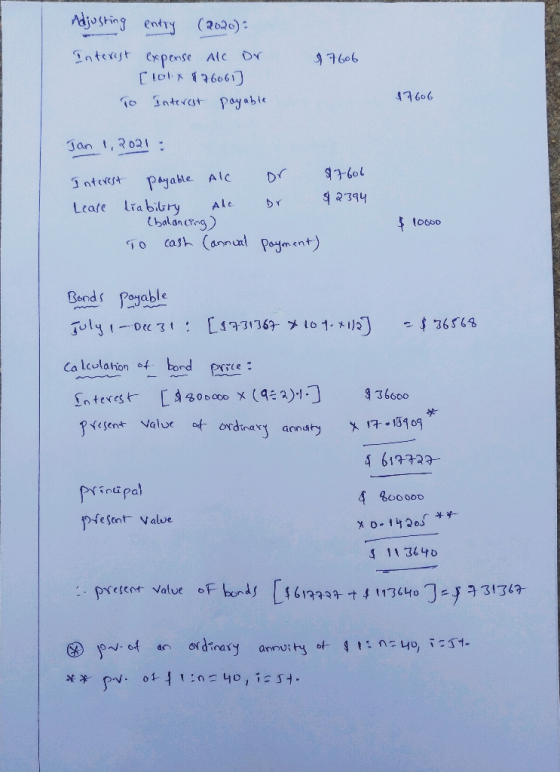 Adjusting entry (2020):
Interest expense A/c Dr $7606
[10% x $76061]
To Interest payable $7606
Jan 1, 2021:
Interest payable A/c Dr $7606
Lease liability A/c Dr $2394
(balancing)
To cash (annual payment) $10000
Bonds Payable
July 1 - Dec 31: [$731367 x 10% x 1/2] = $36568
Calculation of bond price:
Interest [$800000 x (9÷2)%] $36000
present value of ordinary annuity x 17.15909*
$617727
principal $800000
present value x 0.14205**
$113640
∴ present value of bonds [$617727 + $113640] = $731367
⊛ pv. of an ordinary annuity of $1: n=40, i=5%.
** pv. of $1: n=40, i=5%.